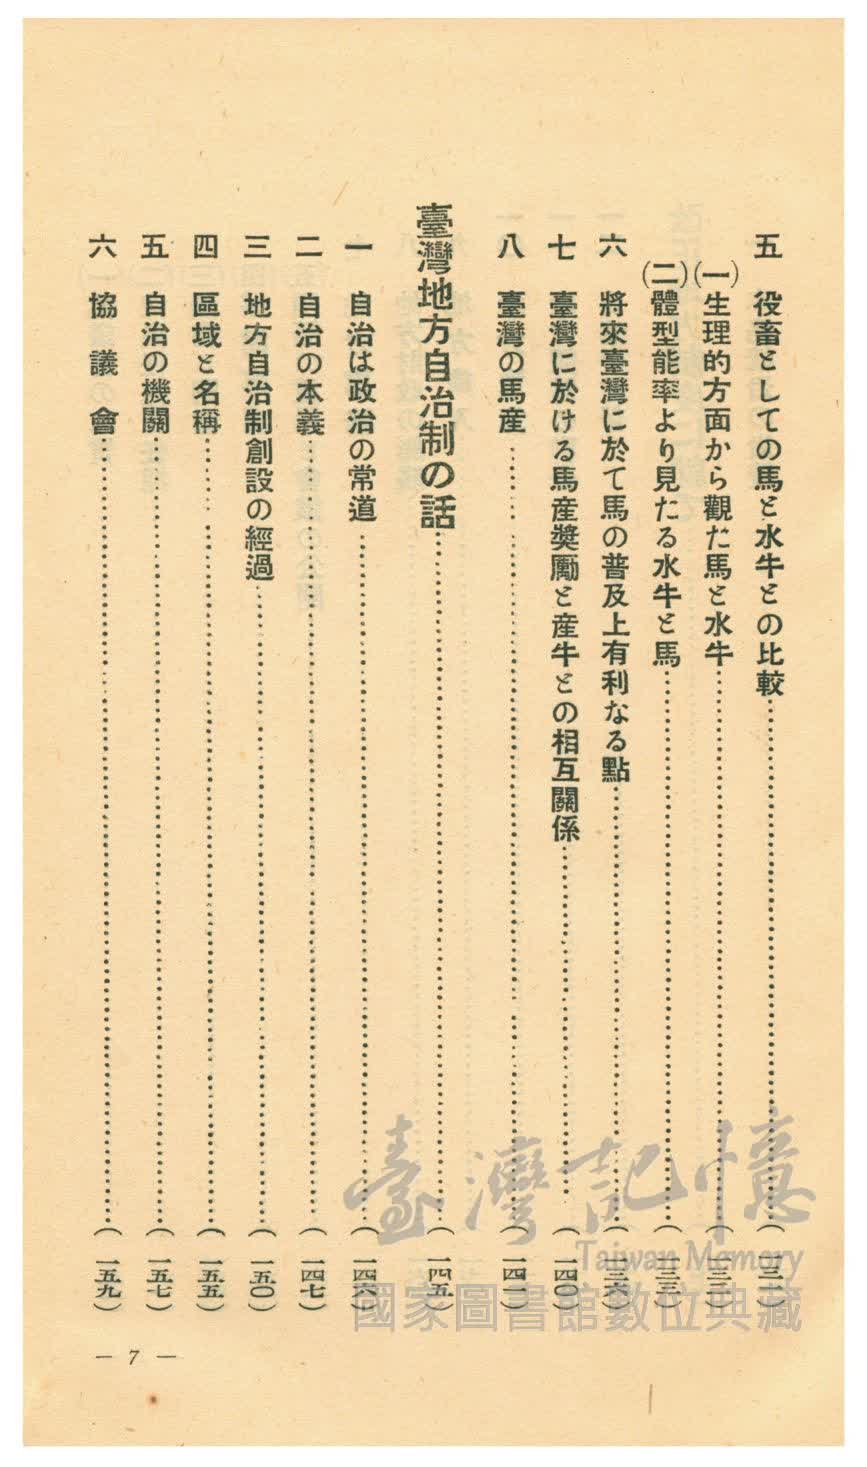 五 役畜としての馬と水牛との比較
(一)生理的方面から觀た馬と水牛
(二)體型能率より見たる水牛と馬
六 將來臺灣に於て馬の普及上有利なる點
七 臺灣に於ける馬産奬勵と産牛との相互關係……(一四〇)
八 臺灣の馬産……(一四一)
臺灣地方自治制の話……(一四五)
一 自治は政治の常道……(一四六)
二 自治の本義……(一四七)
三 地方自治制創設の經過……(一五〇)
四 區域と名稱……(一五五)
五 自治の機關……(一五七)
六 協議會……(一五九)
— 7 —
臺灣記憶
Taiwan Memory
國家圖書館數位典藏